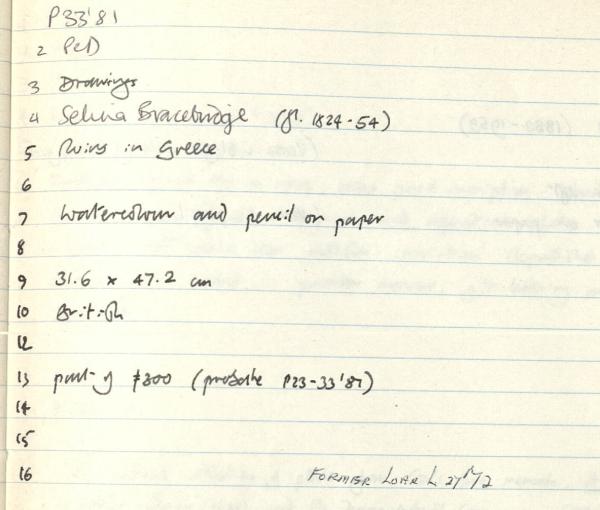 P33'81
2 P&D
3 Drawings
4 Selina Bracebridge (fl. 1824-54)
5 Ruins in Greece
6
7 Watercolour and pencil on paper
8
9 31.6 x 47.2 cm
10 British
12
13 part of £300 (probate P23-33'81)
14
15
16 FORMER LOAN L